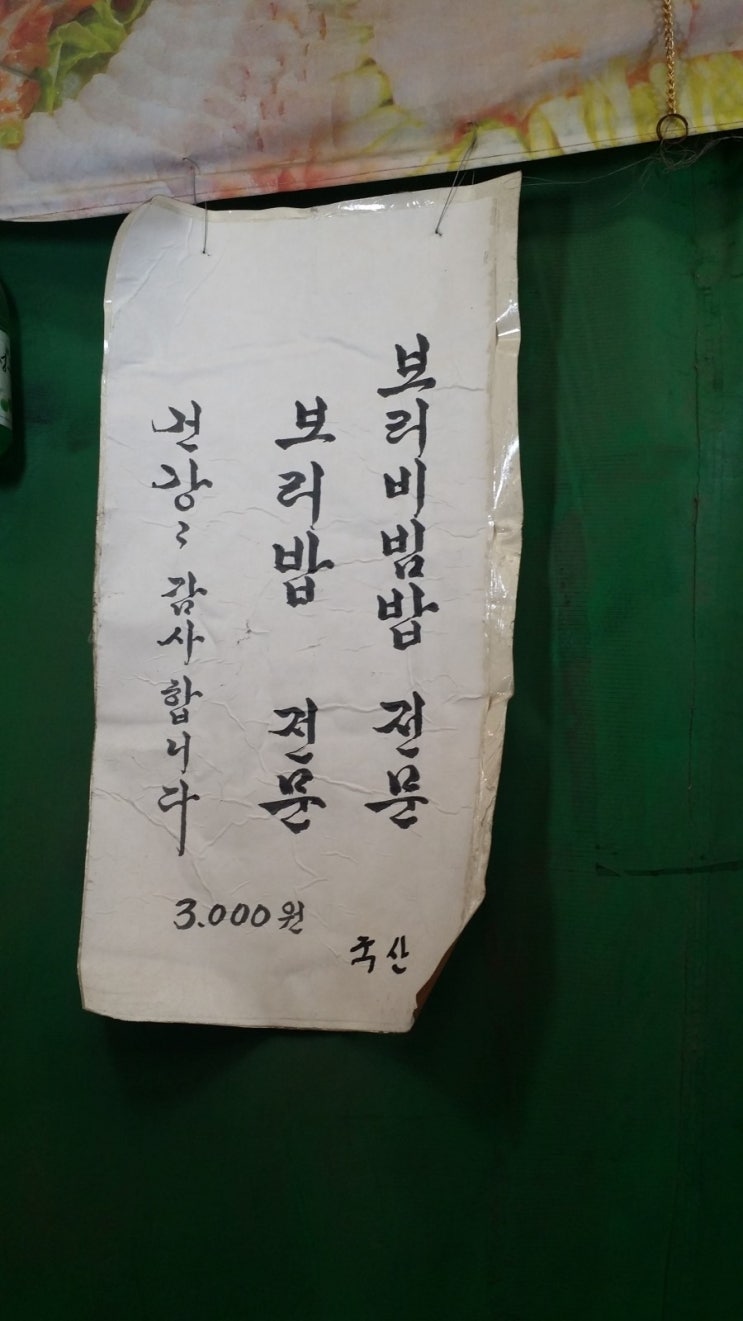 보리비빔밥 전문
보리밥 전문
건강〻 감사합니다
3.000원
국산